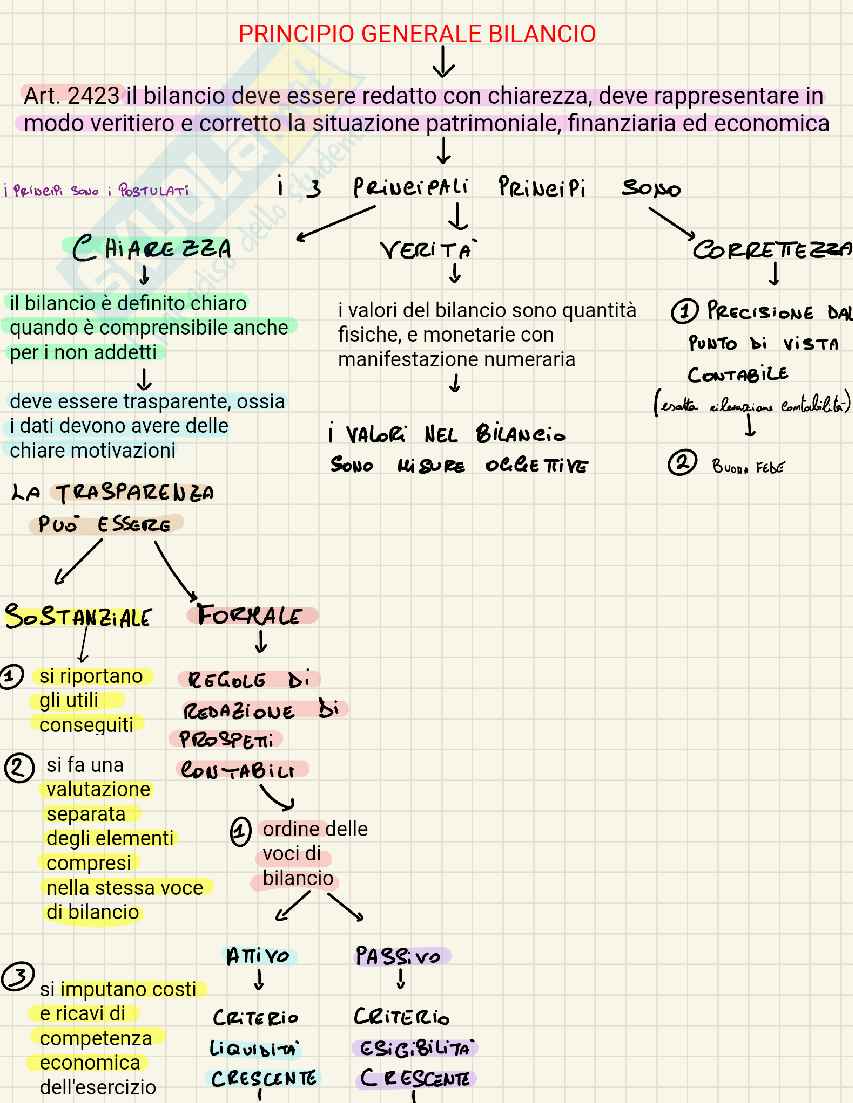 PRINCIPIO GENERALE BILANCIO
Art. 2423 il bilancio deve essere redatto con chiarezza, deve rappresentare in
modo veritiero e corretto la situazione patrimoniale, finanziaria ed economica
i PRINCIPI SONO i POSTULATI
i 3 PRINCIPALI PRINCIPI SONO
CHIAREZZA
il bilancio è definito chiaro
quando è comprensibile anche
per i non addetti
deve essere trasparente, ossia
i dati devono avere delle
chiare motivazioni
LA TRASPARENZA
PUÒ ESSERE
VERITÀ
i valori del bilancio sono quantità
fisiche, e monetarie con
manifestazione numeraria
i VALORI NEL BILANCIO
SONO MISURE OGGETTIVE
CORRETTEZZA
1 PRECISIONE DAL
PUNTO DI VISTA
CONTABILE
(esatta rilevazione contabilità)
2 BUONA FEDE
SOSTANZIALE
1 si riportano
gli utili
conseguiti
2 si fa una
valutazione
separata
degli elementi
compresi
nella stessa voce
di bilancio
3 si imputano costi
e ricavi di
competenza
economica
dell'esercizio
FORMALE
REGOLE DI
REDAZIONE DI
PROSPETTI
CONTABILI
1 ordine delle
voci di
bilancio
ATTIVO
CRITERIO
LIQUIDITÀ
CRESCENTE
PASSIVO
CRITERIO
ESIGIBILITÀ
CRESCENTE
SKUOLA